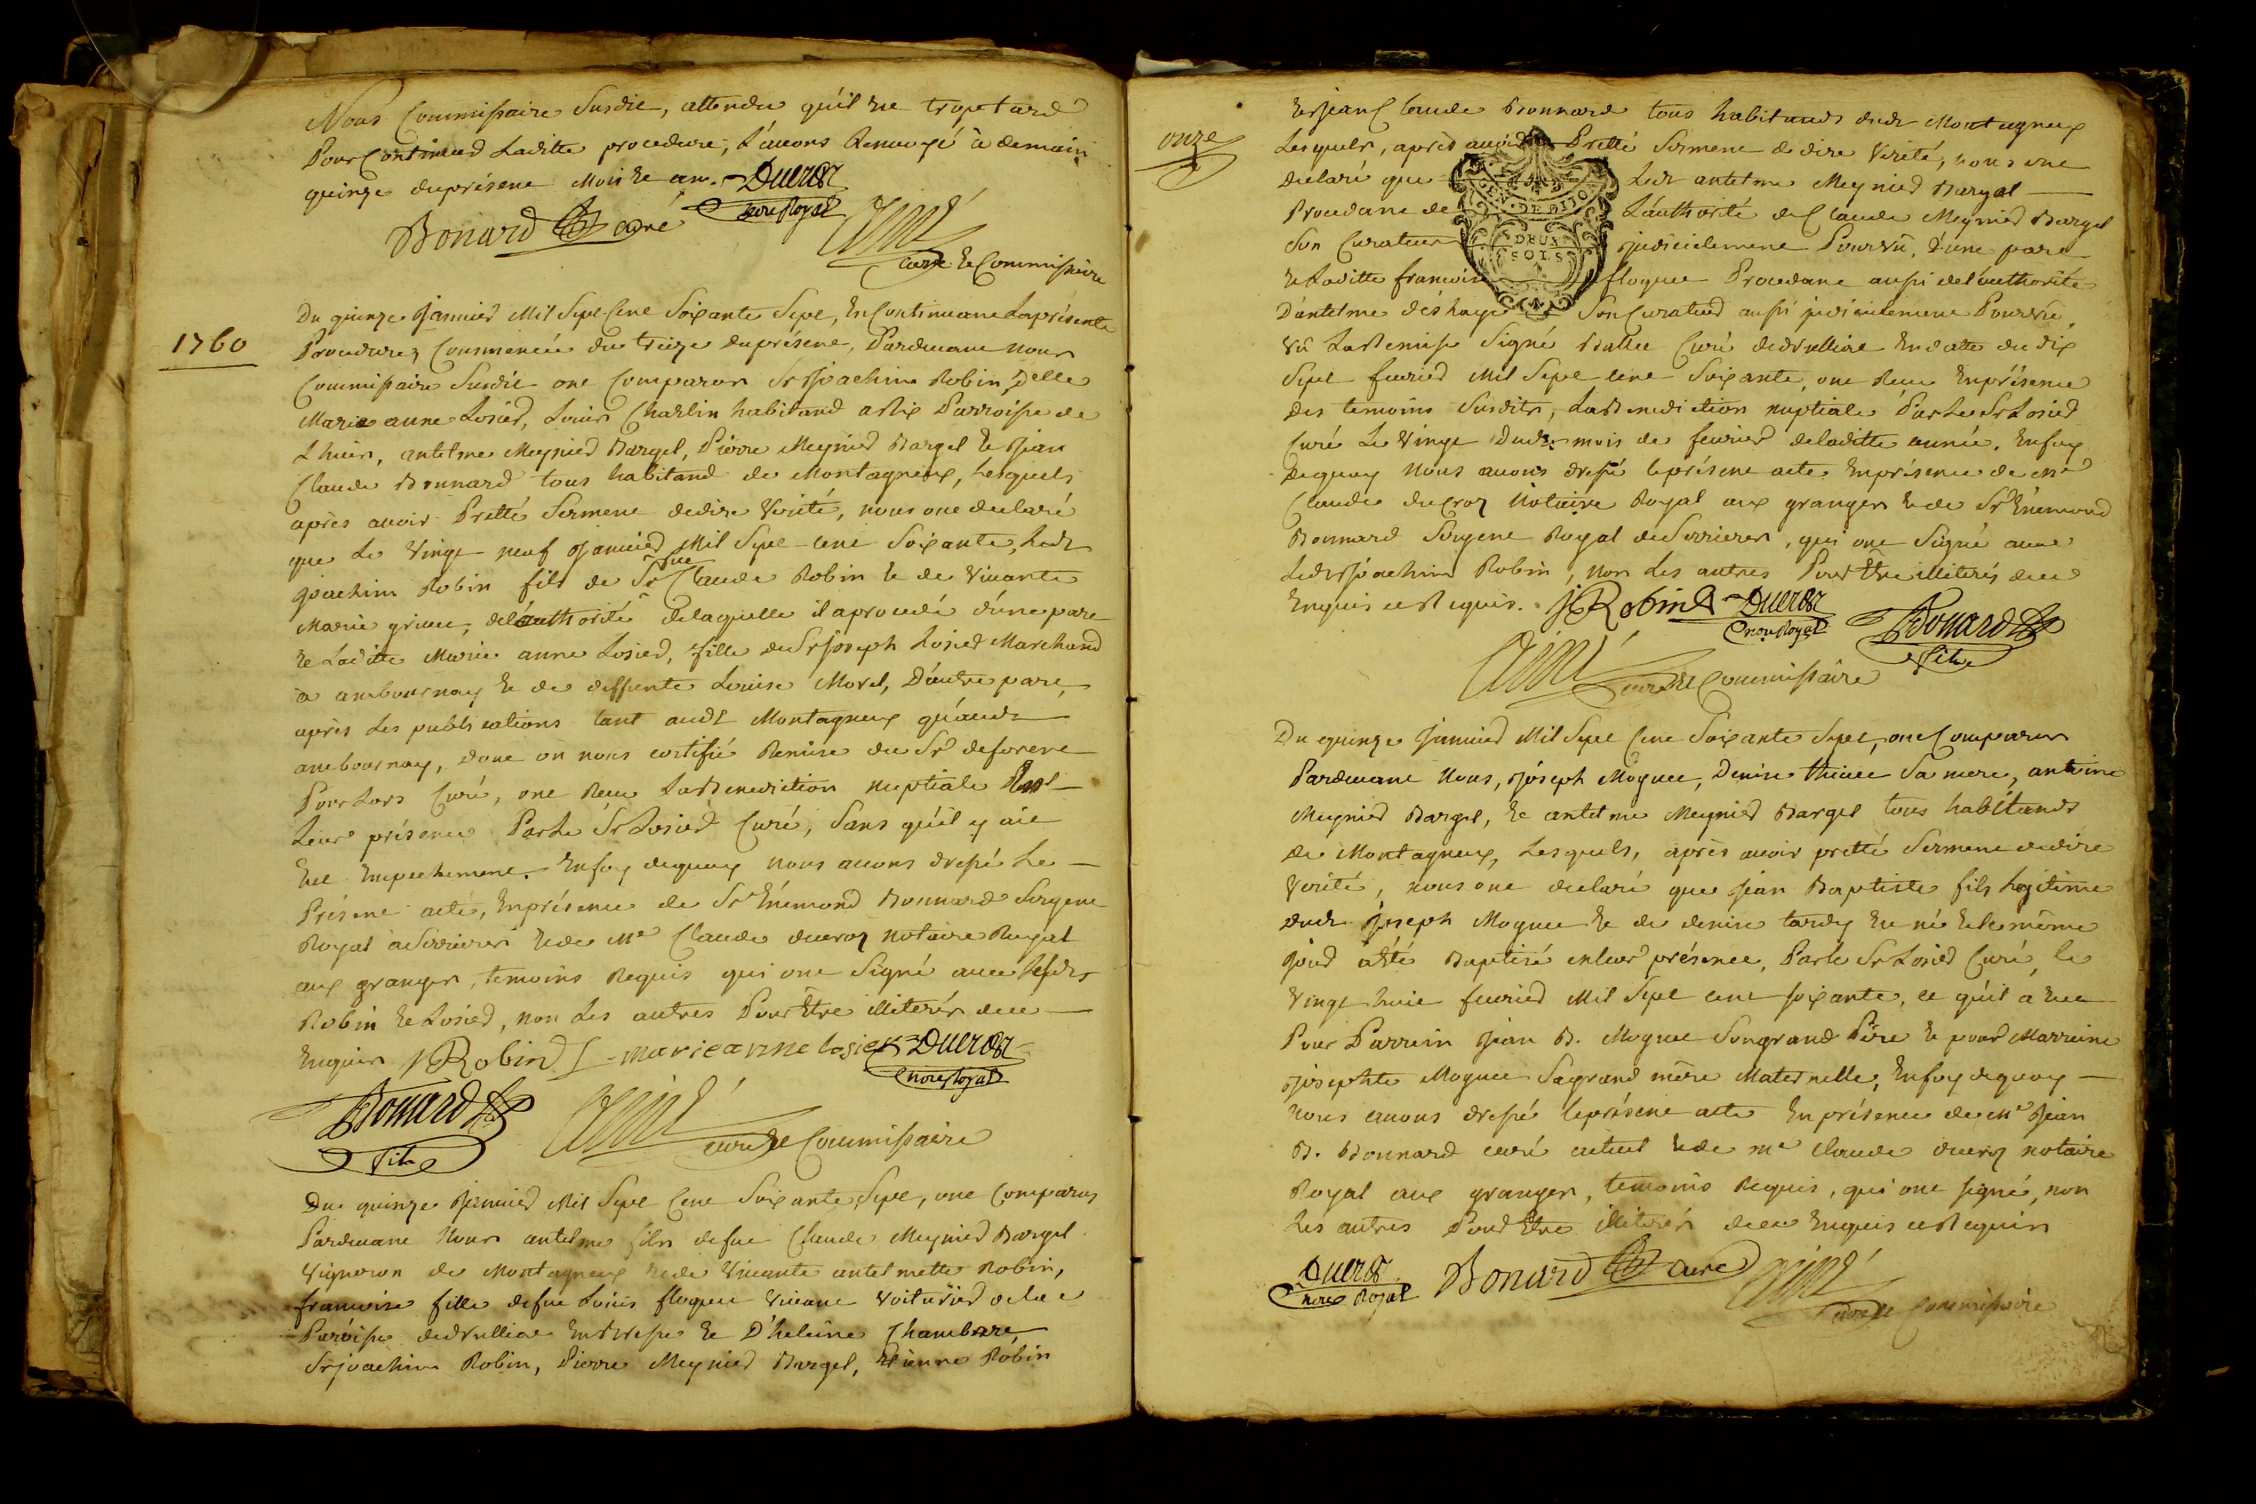 Nous Commissaire Susdit, attendu qu'il Est trop tard
Pour Continuer Laditte procedure, L'avons Renvoyé à demain
quinze du présent Mois Et an. Ducroz
nore Royal
Bonard curé
Curé Et Commissaire
1760
Du quinze Janvier Mil Sept Cent Soixante Sept, En Continuant La présente
Procedure, Commencée du treize du présent, Pardevant nous
Commissaire Susdit ont Comparus Sr Joachim Robin, Delle
Marie anne Losier, Louis Charlin habitand a Rix Parroisse de
Lhuis, antelme Meynier Bargel, Pierre Meynier Bargel Et Jean
Claude Bonnard tous habitand de Montagneux, Lesquels
après avoir Pretté Serment de dire Verité, nous ont declaré
que Le Vingt neuf Janvier Mil Sept cent Soixante, Ledt
Joachim Robin fils de feu Sr Claude Robin Et de Vivante
Marie de L'authorité de laquelle il a procedé d'une part
Et Laditte Marie anne Losier, fille de Sr Joseph Losier Marchand
a ambournay Et de deffunte Louise Morel, D'autre part,
après Les publications tant audt Montagneux qu'audt
ambournay, dont on nous certifié Remise du Sr deforest
Pour Lors Curé, ont Reçu La Benediction nuptiale En
Leur présence Par Le Sr Losier Curé, Sans qu'il y aie
Eut Empechement. En foy de quoy nous avons dressé Le
Présent acte, En présence de Sr Enemond Bonnard Sergent
Royal a Serrieres Et de Me Claude ducroz notaire Royal
aux granges, temoins Requis qui ont Signé avec Lesdts
Robin Et Losier, non Les autres Pour Etre illiterés de ce
Enquis J Robin marie anne losier Ducroz
nore Royal
Bonard
Curé Et Commissaire
Du quinze Janvier Mil Sept Cent Soixante Sept, ont Comparus
Pardevant Nous antelme fils de feu Claude Meynier Bargel
Vigneron de Montagneux Et de Vivante antelmette Robin,
francoise fille de feu Louis floquet Vivant Voiturier de la
Paroisse de Brulliat En Bresse Et D'helaine Chambare,
Sr joachim Robin, Pierre Meynier Bargel, Etienne Robin
onze
Et Jean Claude Bonnard tous habitands dudt Montagneux
Lesquels, après avoir Pretté Serment de dire Verité, nous ont
declaré que Ledt antelme Meynier Bargel
Procedant de L'authorité de Claude Meynier Bargel
Son Curateur judicielement Pourvû, d'une part
Et Laditte francoise floquet Procedant aussi de L'authorité
D'antelme Son Curateur aussi judicielement Pourvû,
GEN. DE DIJON
DEUX
SOLS
Vû La Remise Signé Curé de Brulliat En datte du dix
Sept fevrier Mil Sept cent Soixante, ont Reçu En présence
Des temoins Susdits, La Benediction nuptiale Par Le Sr Losier
Curé Le Vingt Dudt mois de fevrier de laditte année. En foy
De quoy Nous avons dressé le présent acte En présence de Me
Claude ducroz Notaire Royal aux granges Et de Sr Enemond
Bonnard Sergent Royal de Serrieres, qui ont Signé avec
Ledt Sr Joachim Robin, non Les autres Pour Etre illiterés de ce
Enquis et Requis. J Robin Ducroz
nore Royal
Bonard
Curé Et Commissaire
Du quinze Janvier Mil Sept Cent Soixante Sept, ont Comparus
Pardevant Nous, Joseph Moquet, Denise Sa mere, antoine
Meynier Bargel, Et antelme Meynier Bargel tous habitands
De Montagneux, Lesquels, après avoir pretté Serment de dire
Verité, nous ont declaré que Jean Baptiste fils Legitime
Dudt Joseph Moquet Et de denise tardy Est né Et le même
Jour a Eté Baptisé en leur présence, Par le Sr Losier Curé, le
Vingt huit fevrier Mil Sept cent soixante, et qu'il a Eut
Pour Parrein Jean B. Moquet Son grand Père Et pour Marreine
Josephte Moquet Sa grand mère Maternelle, En foy de quoy
nous avons dressé le présent acte En présence de Me Jean
B. Bonnard curé actuel Et de me Claude ducroz notaire
Royal aux granges, temoins Requis, qui ont signé, non
Les autres Pour Etre illiterés de ce Enquis et Requis
Ducroz
nore Royal Bonard Curé
Curé Et Commissaire